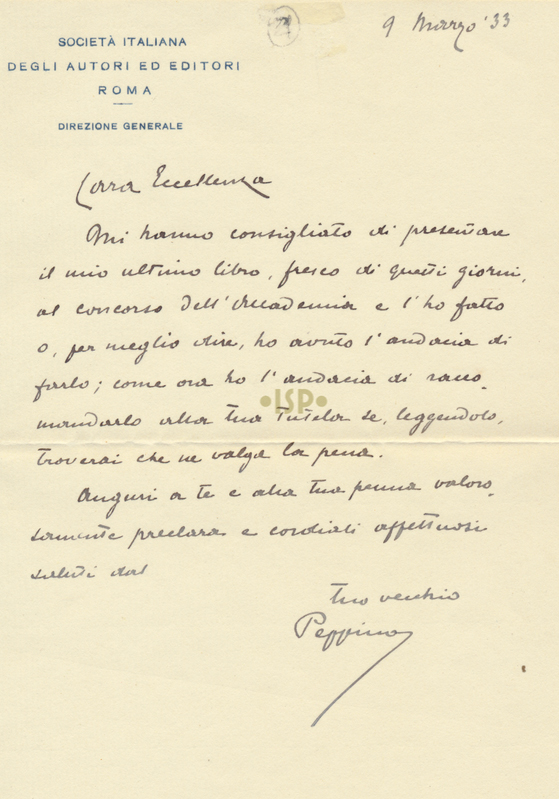 9 Marzo '33
SOCIETÀ ITALIANA
DEGLI AUTORI ED EDITORI
ROMA
DIREZIONE GENERALE
Cara Eccellenza
Mi hanno consigliato di presentare
il mio ultimo libro, fresco di questi giorni,
al concorso dell'Accademia e l'ho fatto
o, per meglio dire, ho avuto l'audacia di
farlo; come ora ho l'audacia di racco-
mandarlo alla tua tutela se, leggendolo,
troverai che ne valga la pena.
Auguri a te e alla tua penna valoro-
samente preclara e cordiali affettuosi
saluti dal
tuo vecchio
Peppino
•ISP•